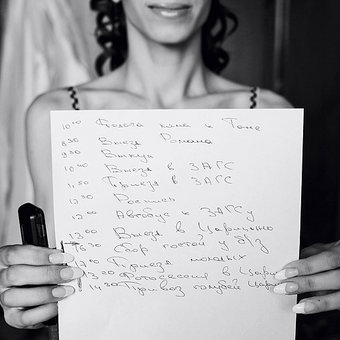 10 00
8 30 Выезд Романа
9 30 Выкуп
10 40 Выезд в ЗАГС
11 50 Приезд в ЗАГС
12 30 Роспись
12 00 Автобус к ЗАГСу
13 00 Выезд в Царицыно
16 30 Сбор гостей у б/з
17 00 Приезд молодых
13 20 Фотосессия в Цари
14 30 Привоз голубей Цари